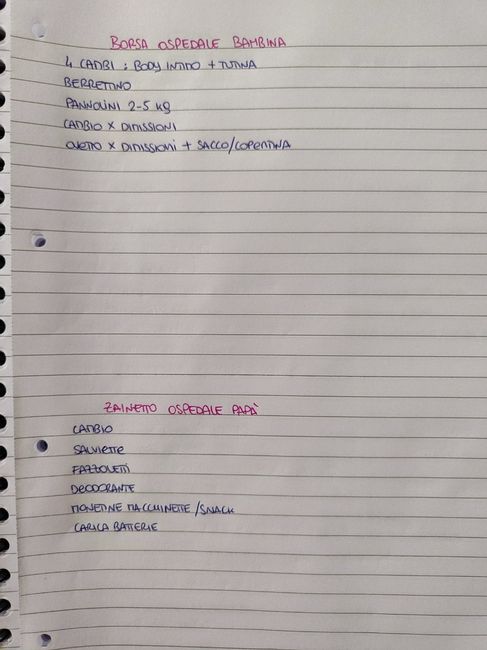 BORSA OSPEDALE BAMBINA
4 CAMBI : BODY INTIMO + TUTINA
BERRETTINO
PANNOLINI 2-5 Kg
CAMBIO X DIMISSIONI
OVETTO X DIMISSIONI + SACCO/COPERTINA
ZAINETTO OSPEDALE PAPÀ
CAMBIO
SALVIETTE
FAZZOLETTI
DEODORANTE
MONETINE MACCHINETTE/SNACK
CARICA BATTERIE